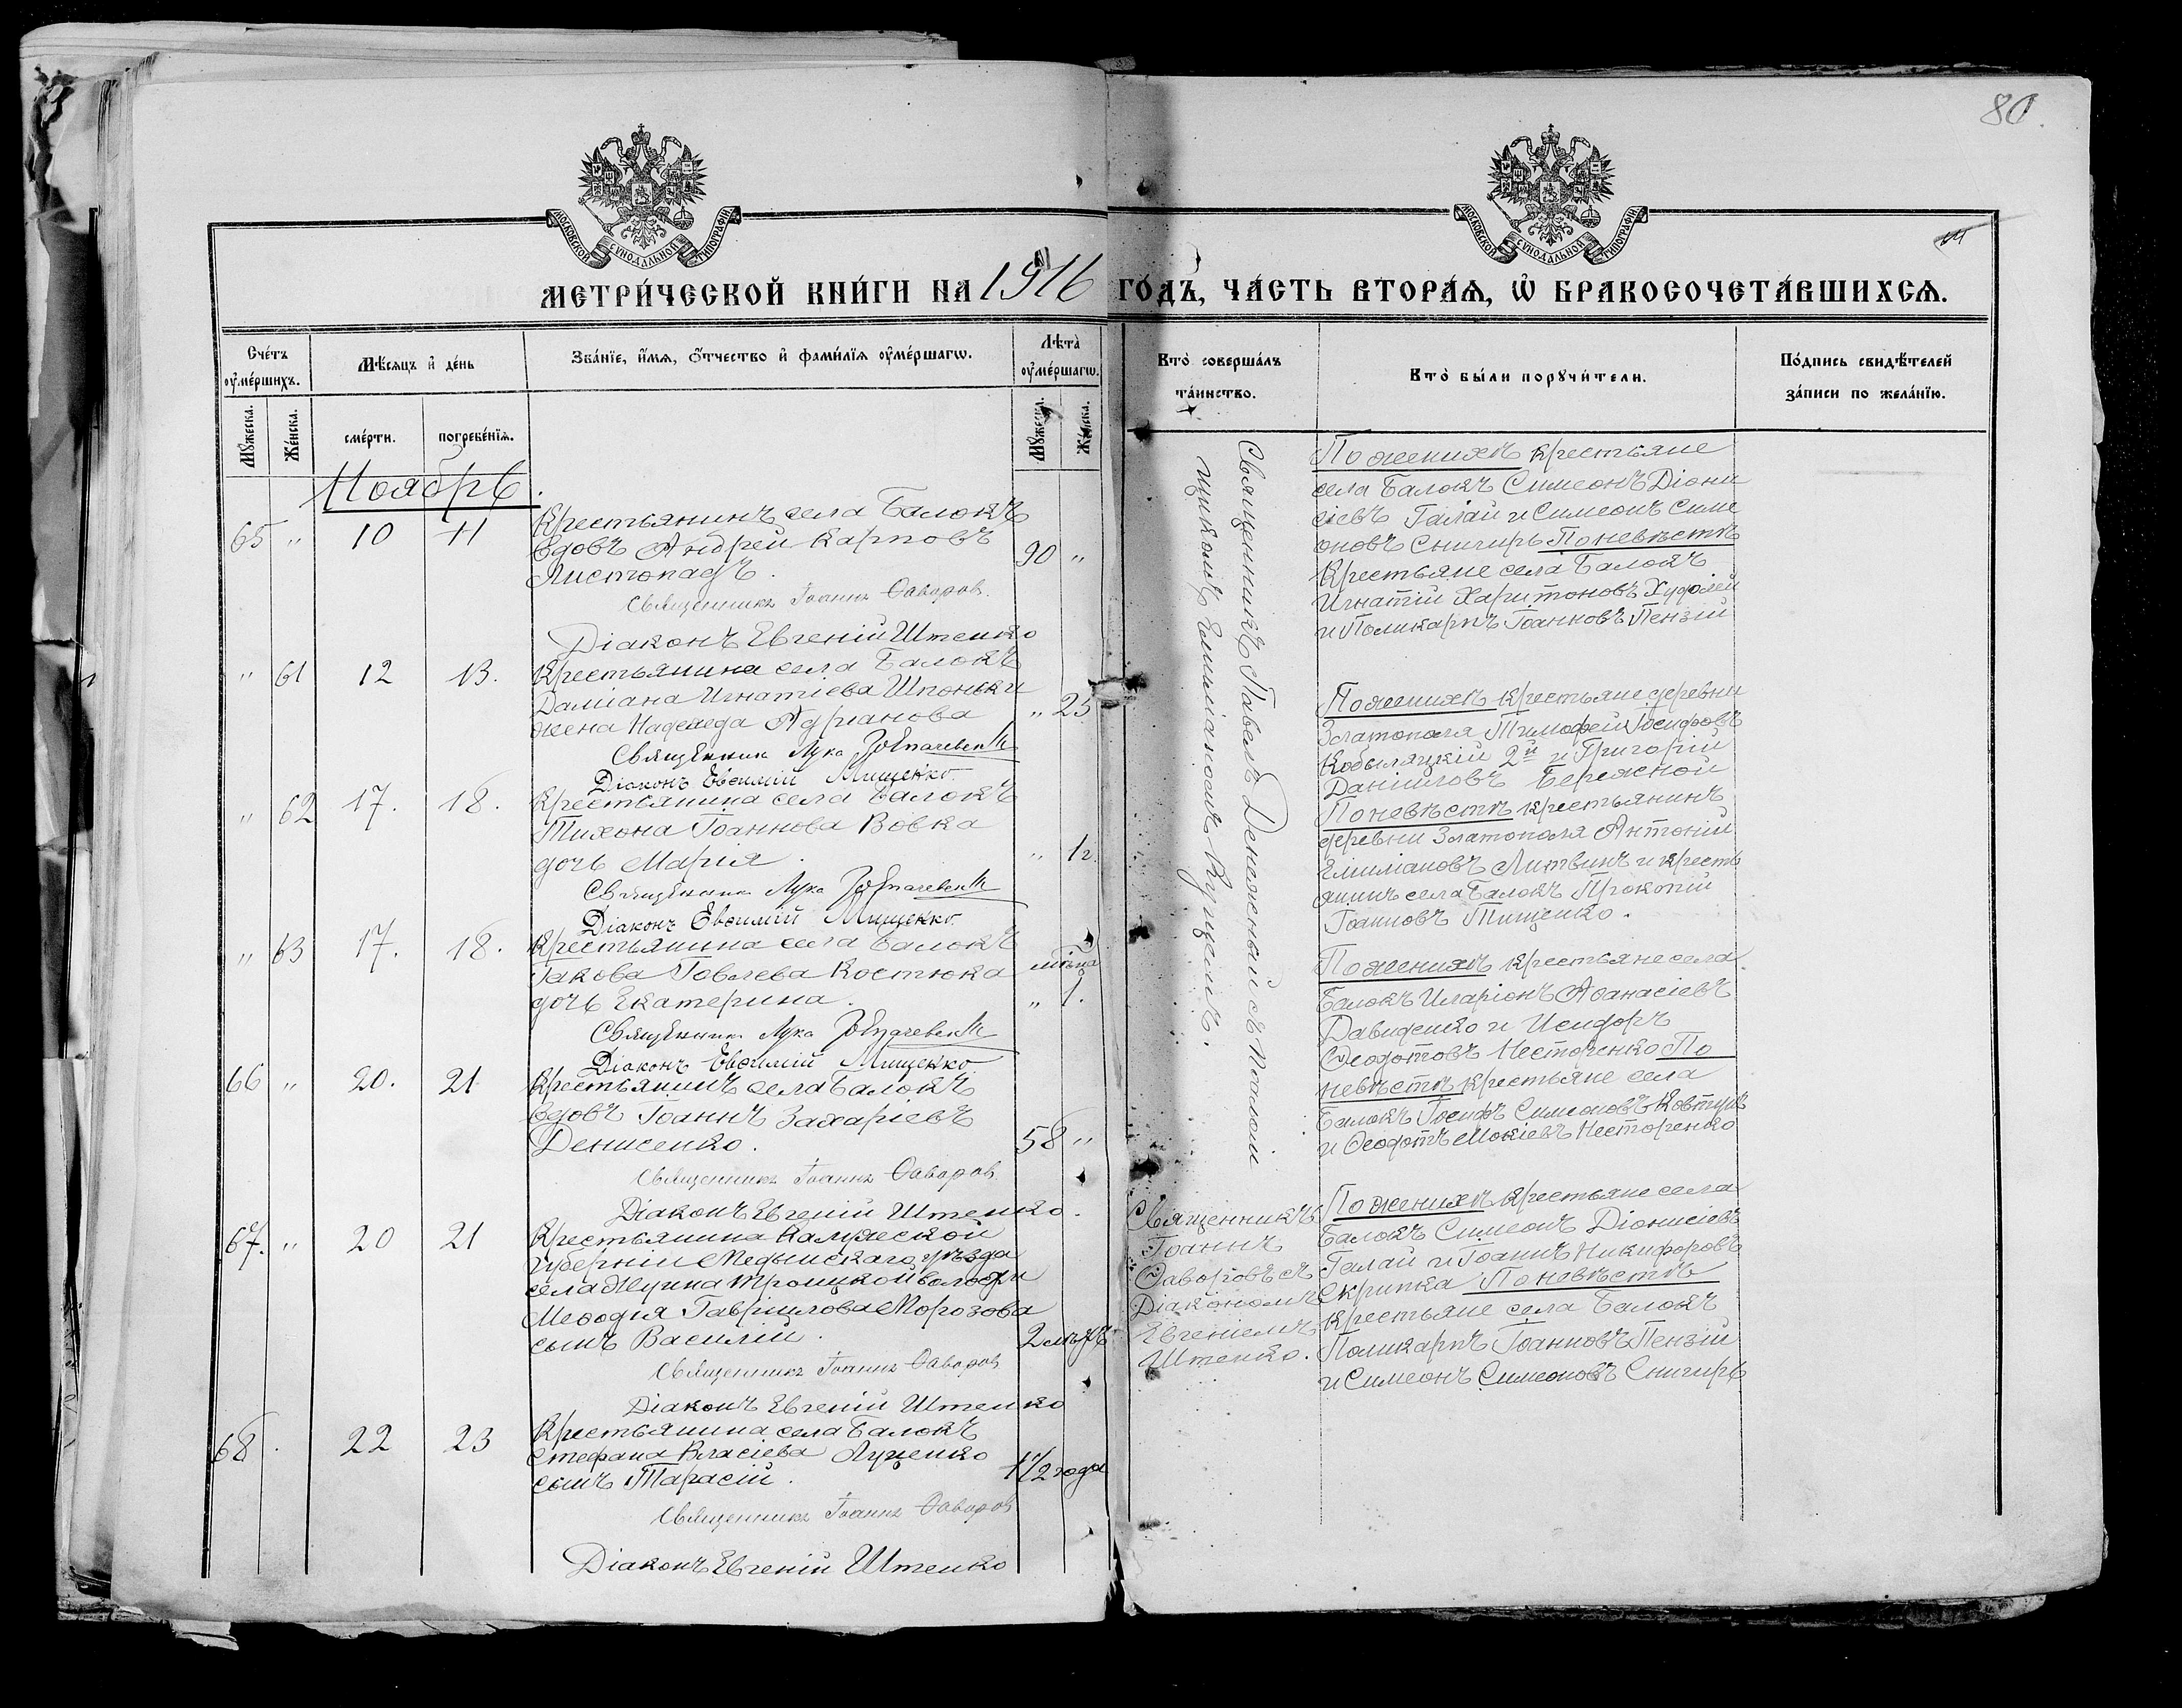 80
МОСКОВСКОЙ СУНОДАЛЬНОЙ ТИПОГРАФІИ
МЕТРИ́ЧЕСКОЙ КНИ́ГИ НА 1916
Сче́тъ оу҆ме́ршихъ.
Мѣ́сяцъ и҆ де́нь
Зва́нїе, и҆́мѧ, ѻ҆́тчество и҆ фами́лїѧ оу҆ме́ршагѡ.
Лѣ́та̀ оу҆ме́ршагѡ.
Мꙋ́жеска.
Же́нска.
сме́рти.
погребе́нїѧ.
Мꙋ́жеска.
Же́нска.
Ноябрь.
65 " 10 11 Крестьянинъ села Балокъ
вдовъ Андрей Карповъ 90 "
Листопадъ.
Священникъ Іоаннъ Ѳаворов.
Діаконъ Евгеній Штепко
" 61 12 13. Крестьянина села Балокъ
Даміана Игнатіева Шпоньки
жена Надежда Адріанова " 25
Священник Лука
Діаконъ Евѳимій Мищенко.
" 62 17. 18. Крестьянина села Балокъ
Тихона Іоаннова Вовка
дочь Марія. " 1 г.
Священник Лука
Діаконъ Евѳимій Мищенко.
" 63 17. 18. Крестьянина села Балокъ
Іакова Іовлева Костюка
дочь Екатерина. " 1.
Священник Лука
Діаконъ Евѳимій Мищенко
66 " 20. 21 Крестьянинъ села Балокъ
вдовъ Іоаннъ Захаріевъ
Денисенко. 58 "
Священникъ Іоаннъ Ѳаворов
Діаконъ Евгеній Штепко.
67. " 20 21 Крестьянина Калужской
губерніи Медынскаго уѣзда
села Троицкой волости
Меѳодія Гавріилова Морозова
сынъ Василій. 2
Священникъ Іоаннъ Ѳаворов
Діаконъ Евгеній Штепко
68 22 23 Крестьянина села Балокъ
Стефана Власіева Луценко
сынъ Тарасій. 1 1/2 года
Священникъ Іоаннъ Ѳаворов
Діаконъ Евгеній Штепко
МОСКОВСКОЙ СУНОДАЛЬНОЙ ТИПОГРАФІИ
ГО́ДЪ, ЧА́СТЬ ВТОРА́Я, Ѡ҆ БРАКОСОЧЕТА́ВШИХСѦ.
Кто̀ соверша́лъ та́инство.
Кто̀ бы́ли порꙋчи́тели.
По́дпись свидѣ́телей за́писи по жела́нїю.
Священникъ Павелъ Денеженый съ псалом
щикомъ Емиліаномъ Купцемъ.
По женихѣ крестьяне
села Балокъ Симеонъ Діони
сіевъ Галай и Симеонъ Симе
оновъ Снигирь По невѣстѣ
Крестьяне села Балокъ
Игнатій Харитоновъ Худолей
и Поликарпъ Іоанновъ Пензій
По женихѣ крестьяне деревни
Златополя Тимофей Іосифовъ
Кобыляцкій 2й и Григорій
Даніиловъ Бережной
По невѣстѣ крестьянинъ
деревни Златополя Антоній
Емиліановъ Литвинъ и кресть
янинъ села Балокъ Прокопій
Іоанновъ Тищенко.
По женихѣ крестьяне села
Балокъ Иларіонъ Аѳанасіевъ
Давиденко и Исидоръ
Ѳеодотовъ Нестеренко По
невѣстѣ крестьяне села
Балокъ Іосифъ Симеоновъ Ковтунъ
и Ѳеодотъ Мокіевъ Нестеренко
Священникъ
Іоаннъ
Ѳаворовъ съ
Діакономъ
Евгеніемъ
Штепко.
По женихѣ крестьяне села
Балокъ Симеонъ Діонисіевъ
Галай и Іоаннъ Никифоровъ
Скрипка По невѣстѣ
крестьяне села Балокъ
Поликарпъ Іоанновъ Пензій
и Симеонъ Симеоновъ Снигирь